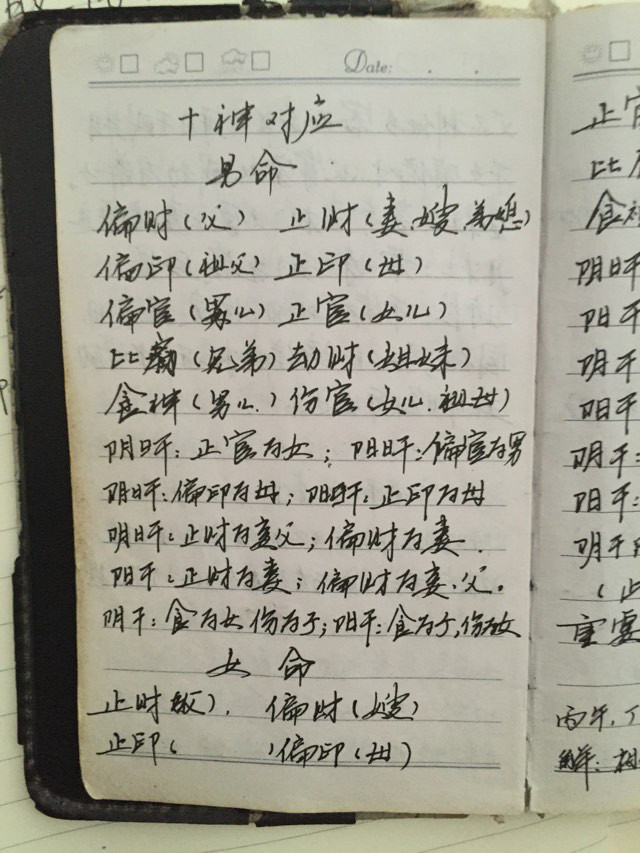 Date:
十神对应
男命
偏财(父) 正财(妻.嫂.弟媳)
偏印(祖父) 正印(母)
偏官(男儿) 正官(女儿)
比肩(兄弟) 劫财(姐妹)
食神(男儿.) 伤官(女儿.祖母)
阴日干:正官为女;阳日干:偏官为男
阴日干:偏印为母;阳日干:正印为母
阴日干:正财为妻父;偏财为妻.
阳干:正财为妻;偏财为妻.父.
阴干:食为女伤为子;阳干:食为子,伤为女
女命
正财(父).偏财(嫂)
正印( )偏印(母)
正官
比肩
食神
阴日干
阳日干
阴干
阳干
阴干:
阳干:
阴干
(正
重要
丙午.丁
解:相